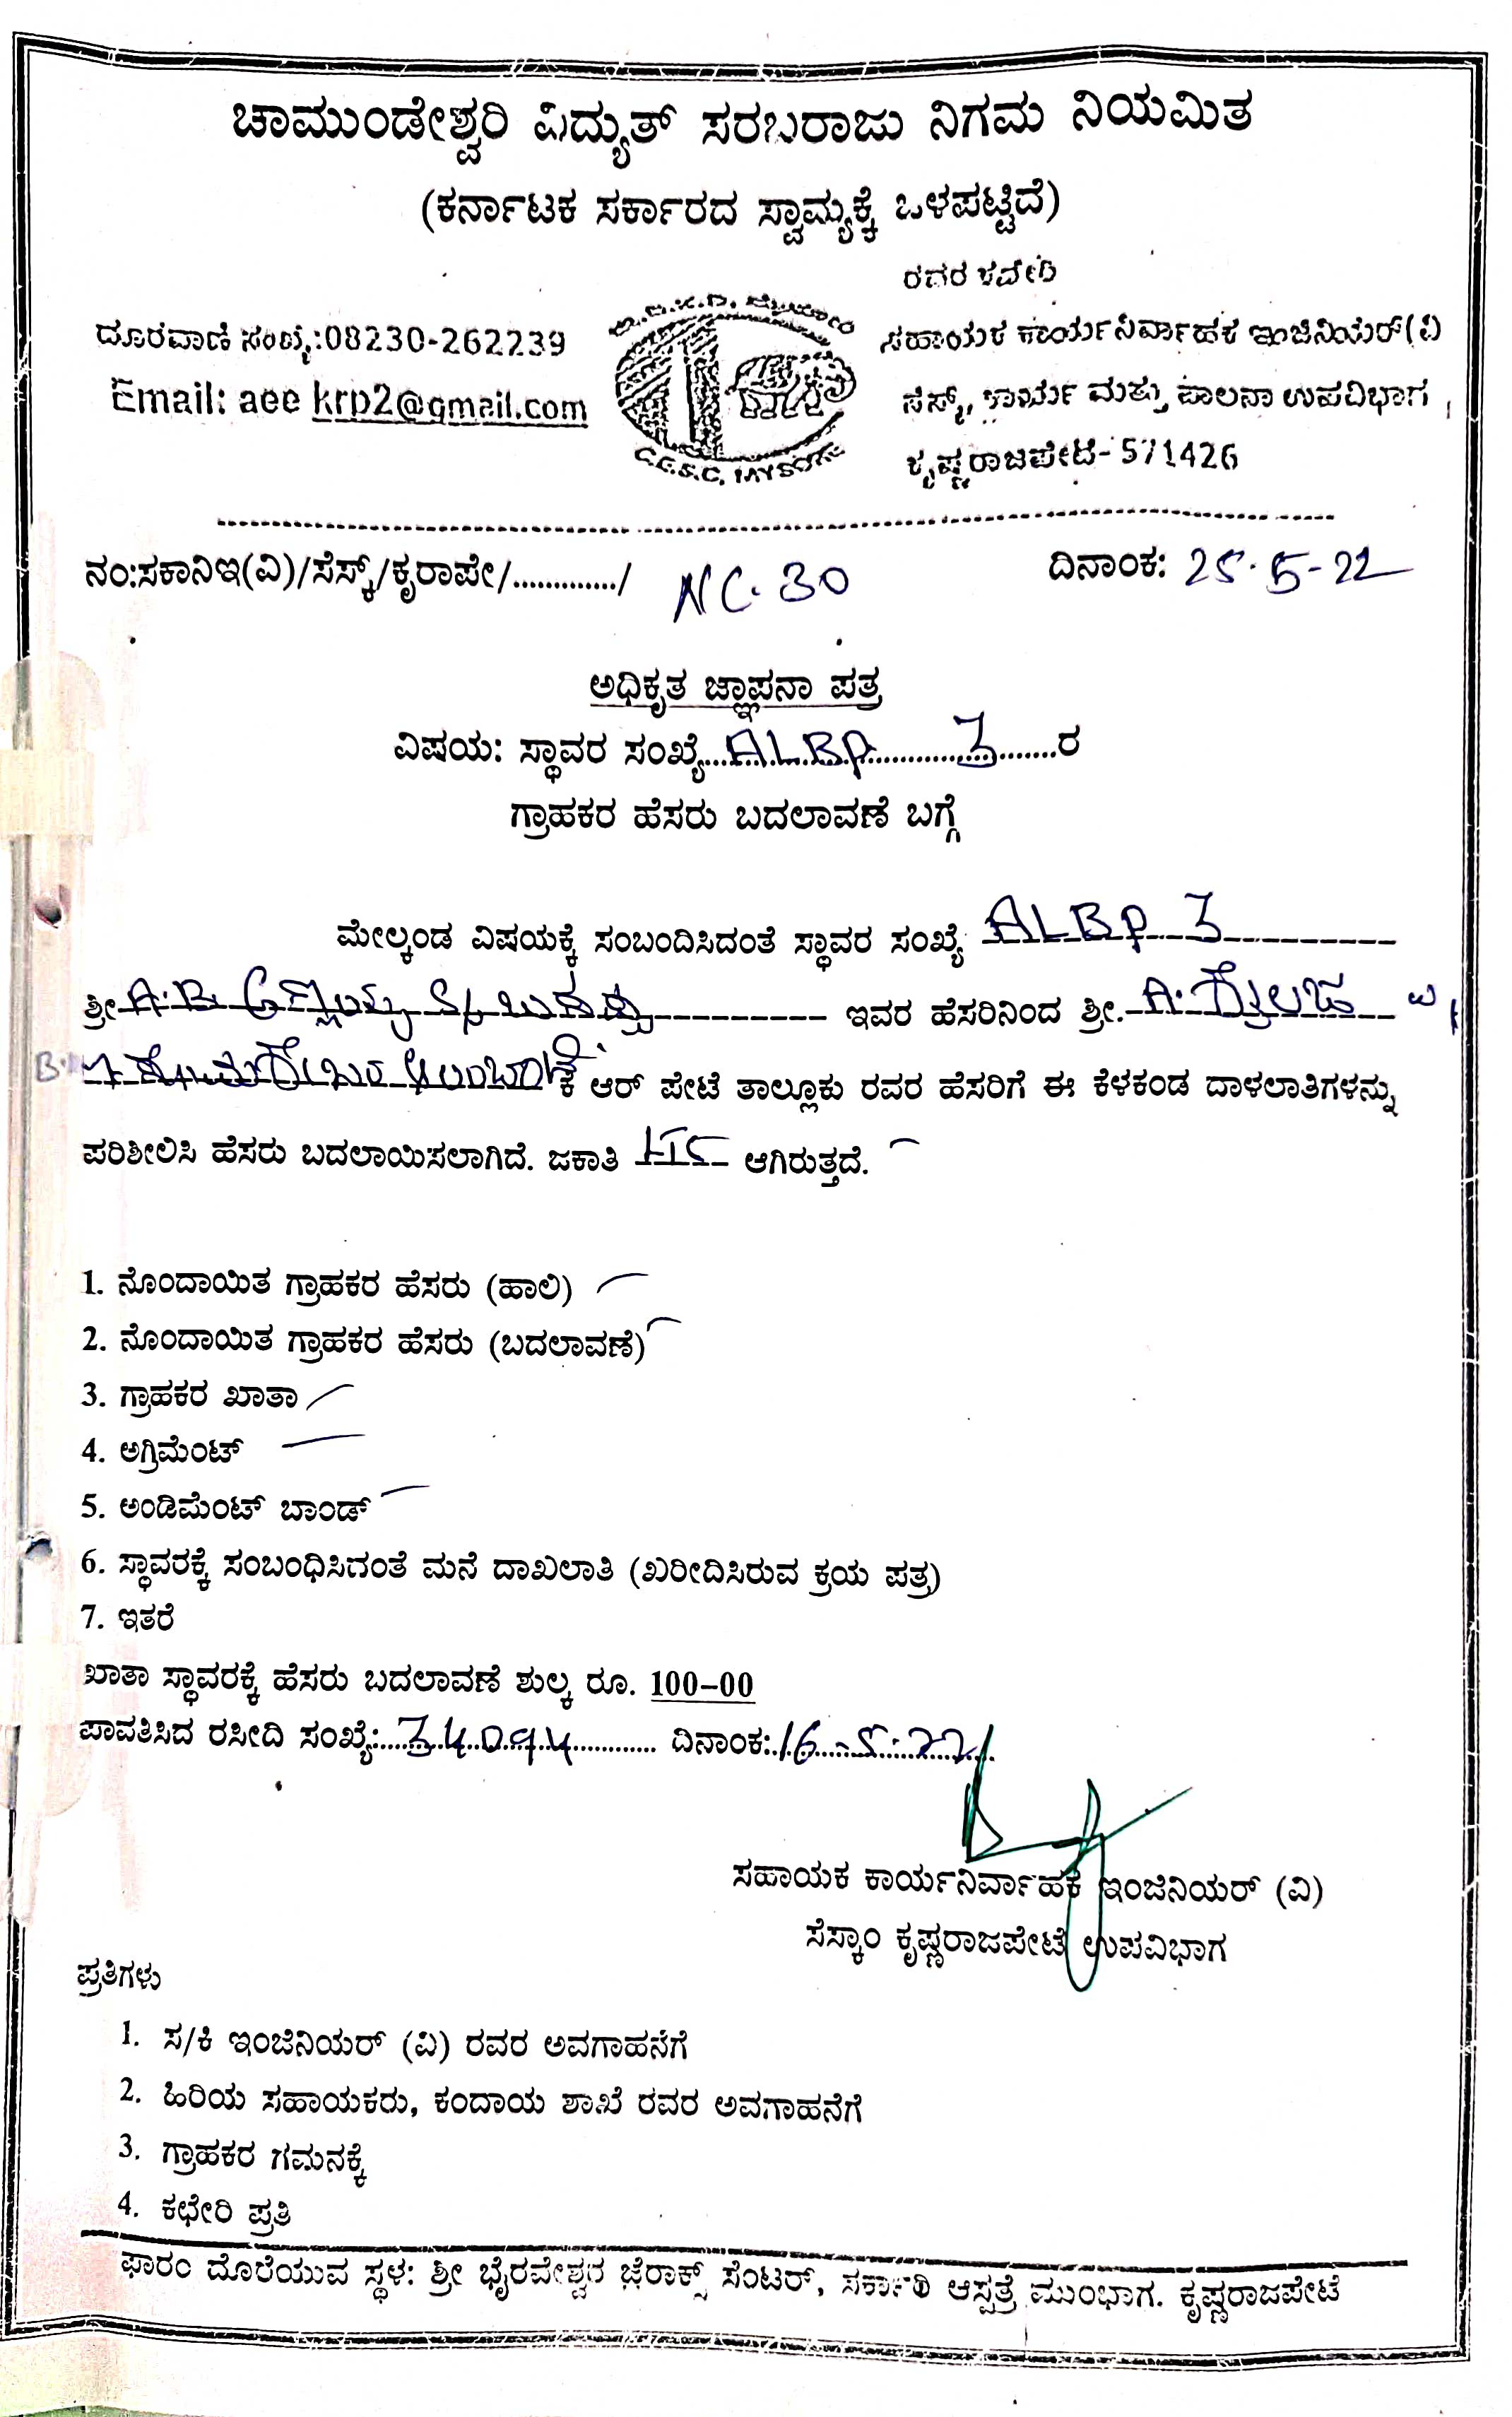 ಚಾಮುಂಡೇಶ್ವರಿ ವಿದ್ಯುತ್ ಸರಬರಾಜು ನಿಗಮ ನಿಯಮಿತ
(ಕರ್ನಾಟಕ ಸರ್ಕಾರದ ಸ್ವಾಮ್ಯಕ್ಕೆ ಒಳಪಟ್ಟಿದೆ)
ರವರ ಕಛೇರಿ
ದೂರವಾಣಿ ಸಂಖ್ಯೆ:08230-262239
ಸಹಾಯಕ ಕಾರ್ಯನಿರ್ವಾಹಕ ಇಂಜಿನಿಯರ್(ವಿ
Email: aee krp2@gmail.com
ಸೆಸ್ಕ್, ಕಾರ್ಯ ಮತ್ತು ಪಾಲನಾ ಉಪವಿಭಾಗ,
C.E.S.C, MYSORE
ಕೃಷ್ಣರಾಜಪೇಟೆ- 571426
ನಂ:ಸಕಾನಿಇ(ವಿ)/ಸೆಸ್ಕ್/ಕೃರಾಪೇ/............./ NC. 30 ದಿನಾಂಕ: 25.5-22
ಅಧಿಕೃತ ಜ್ಞಾಪನಾ ಪತ್ರ
ವಿಷಯ: ಸ್ಥಾವರ ಸಂಖ್ಯೆ...ALBP............3.......ರ
ಗ್ರಾಹಕರ ಹೆಸರು ಬದಲಾವಣೆ ಬಗ್ಗೆ
ಮೇಲ್ಕಂಡ ವಿಷಯಕ್ಕೆ ಸಂಬಂದಿಸಿದಂತೆ ಸ್ಥಾವರ ಸಂಖ್ಯೆ ALBP 3
ಶ್ರೀ A.B. ಇವರ ಹೆಸರಿನಿಂದ ಶ್ರೀ. A.
ಕೆ ಆರ್ ಪೇಟೆ ತಾಲ್ಲೂಕು ರವರ ಹೆಸರಿಗೆ ಈ ಕೆಳಕಂಡ ದಾಳಲಾತಿಗಳನ್ನು
ಪರಿಶೀಲಿಸಿ ಹೆಸರು ಬದಲಾಯಿಸಲಾಗಿದೆ. ಜಕಾತಿ ಆಗಿರುತ್ತದೆ.
1. ನೊಂದಾಯಿತ ಗ್ರಾಹಕರ ಹೆಸರು (ಹಾಲಿ)
2. ನೊಂದಾಯಿತ ಗ್ರಾಹಕರ ಹೆಸರು (ಬದಲಾವಣೆ)
3. ಗ್ರಾಹಕರ ಖಾತಾ
4. ಅಗ್ರಿಮೆಂಟ್
5. ಅಂಡಿಮೆಂಟ್ ಬಾಂಡ್
6. ಸ್ಥಾವರಕ್ಕೆ ಸಂಬಂಧಿಸಿದಂತೆ ಮನೆ ದಾಖಲಾತಿ (ಖರೀದಿಸಿರುವ ಕ್ರಯ ಪತ್ರ)
7. ಇತರೆ
ಖಾತಾ ಸ್ಥಾವರಕ್ಕೆ ಹೆಸರು ಬದಲಾವಣೆ ಶುಲ್ಕ ರೂ. 100-00
ಪಾವತಿಸಿದ ರಸೀದಿ ಸಂಖ್ಯೆ:...34094............ ದಿನಾಂಕ:.16.-5.-22
ಸಹಾಯಕ ಕಾರ್ಯನಿರ್ವಾಹಕ ಇಂಜಿನಿಯರ್ (ವಿ)
ಸೆಸ್ಕಾಂ ಕೃಷ್ಣರಾಜಪೇಟೆ ಉಪವಿಭಾಗ
ಪ್ರತಿಗಳು
1. ಸ/ಕಿ ಇಂಜಿನಿಯರ್ (ವಿ) ರವರ ಅವಗಾಹನೆಗೆ
2. ಹಿರಿಯ ಸಹಾಯಕರು, ಕಂದಾಯ ಶಾಖೆ ರವರ ಅವಗಾಹನೆಗೆ
3. ಗ್ರಾಹಕರ ಗಮನಕ್ಕೆ
4. ಕಛೇರಿ ಪ್ರತಿ
ಫಾರಂ ದೊರೆಯುವ ಸ್ಥಳ: ಶ್ರೀ ಭೈರವೇಶ್ವರ ಜೆರಾಕ್ಸ್ ಸೆಂಟರ್, ಸರ್ಕಾರಿ ಆಸ್ಪತ್ರೆ ಮುಂಭಾಗ. ಕೃಷ್ಣರಾಜಪೇಟೆ